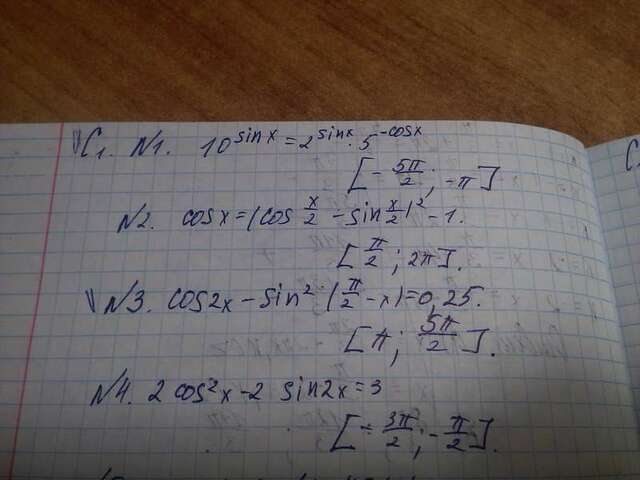 C₁. №1. 10^sinx = 2^sinx · 5^-cosx
[-5π/2; -π]
№2. cosx = (cos x/2 - sin x/2)² - 1.
[π/2; 2π].
№3. cos2x - sin² (π/2 - x) = 0,25.
[π; 5π/2].
№4. 2 cos²x - 2 sin2x = 3
[-3π/2; -π/2].